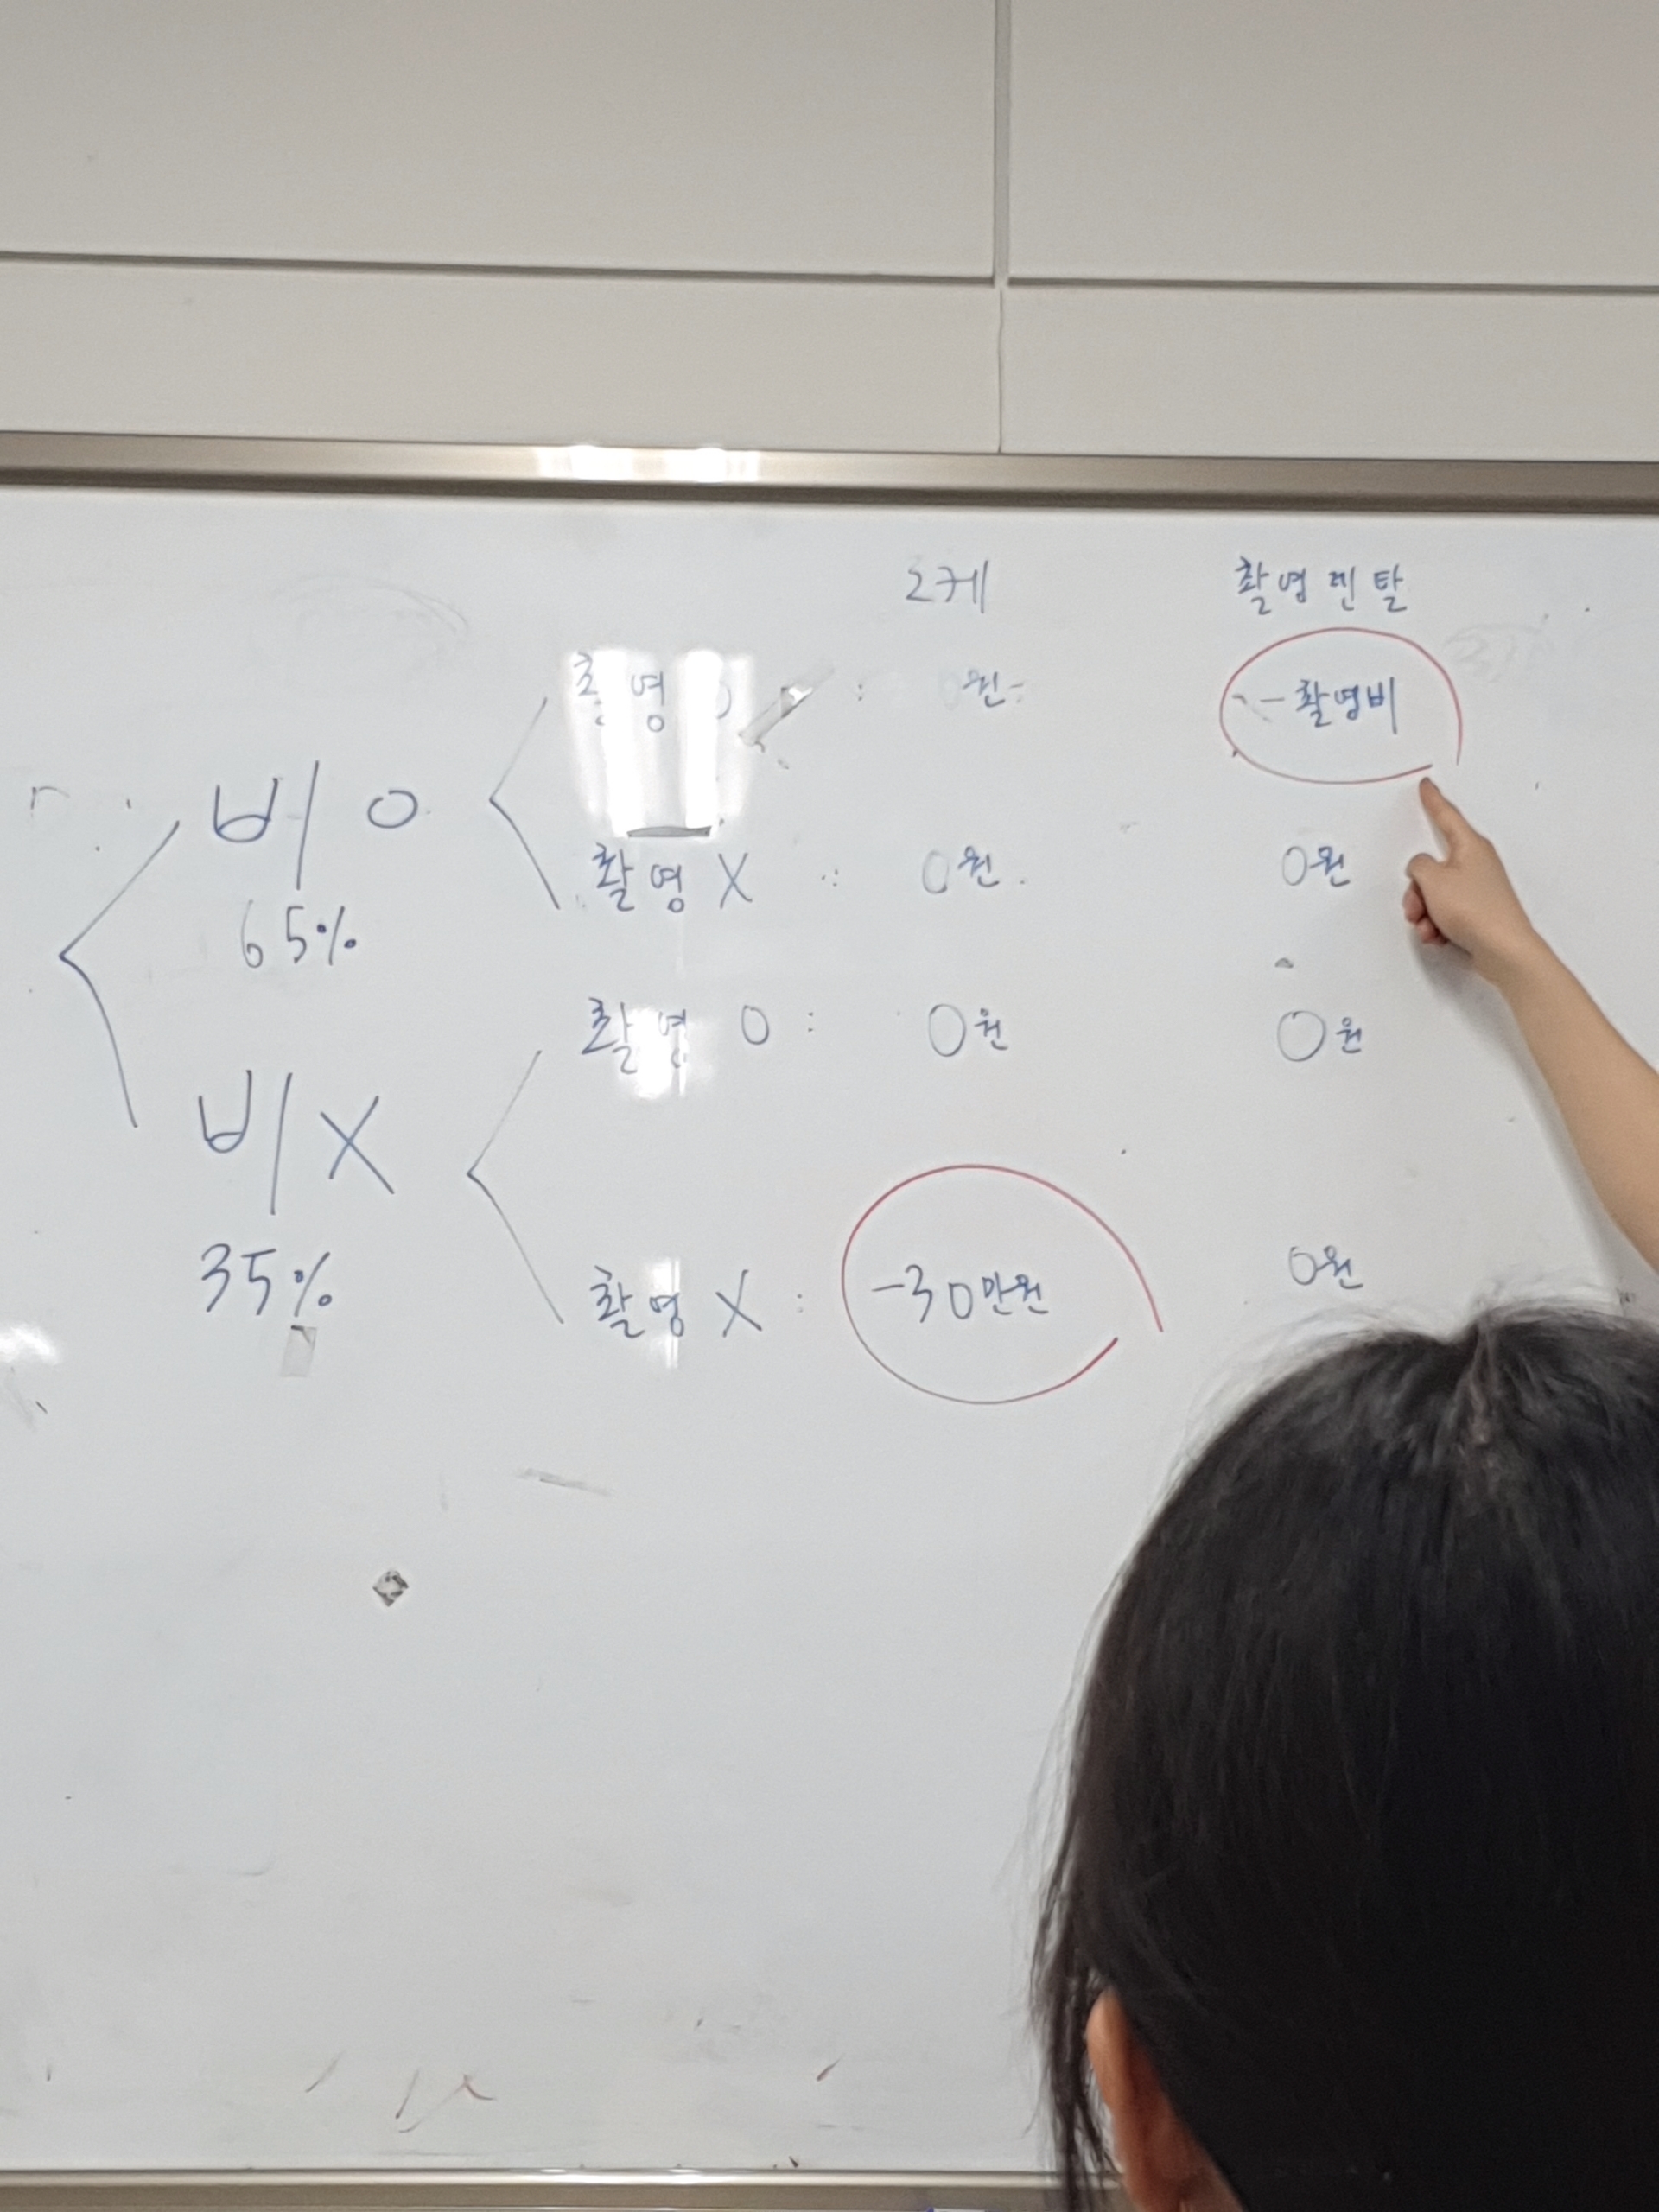 로케 촬영렌탈
촬영 : 0원 -촬영비
비 O
촬영 X : 0원 0원
65%
촬영 O : 0원 0원
비 X
촬영 X : -30만원 0원
35%